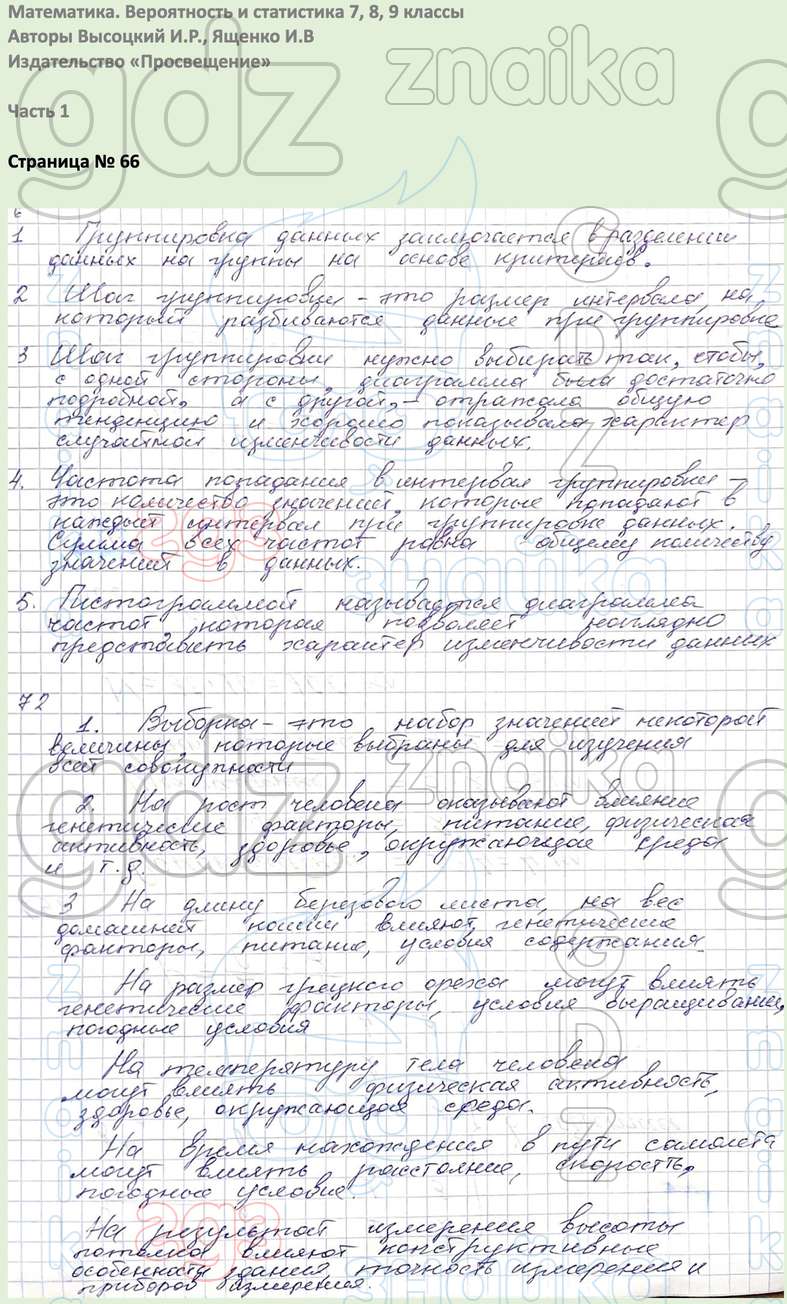 Математика. Вероятность и статистика 7, 8, 9 классы
Авторы Высоцкий И.Р., Ященко И.В
Издательство «Просвещение»
Часть 1
Страница № 66
1 Группировка данных заключается в разделении
данных на группы на основе критериев.
2 Шаг группировки - это размер интервала, на
который разбиваются данные при группировке
3 Шаг группировки нужно выбирать так, чтобы,
с одной стороны, диаграмма была достаточно
подробной, а с другой, - отражала общую
тенденцию и хорошо показывала характер
случайной изменчивости данных.
4. Частота попадания в интервал группировки -
это количество значений, которые попадают в
каждый интервал при группировке данных.
Сумма всех частот равна общему количеству
значений в данных.
5. Гистограммой называется диаграмма
частот, которая позволяет наглядно
представить характер изменчивости данных
72
1. Выборка - это набор значений некоторой
величины, которые выбраны для изучения
всей совокупности
2. На рост человека оказывают влияние
генетические факторы, питание, физическая
активность, здоровье, окружающая среда
и т.д.
3 На длину березового листа, на вес
домашней кошки влияют генетические
факторы, питание, условия содержания.
На размер грецкого ореха могут влиять
генетические факторы, условия выращивания,
погодные условия
На температуру тела человека
могут влиять физическая активность,
здоровье, окружающая среда.
На время нахождения в пути самолета
могут влиять расстояние, скорость,
погодные условия.
На результат измерения высоты
потолка влияют конструктивные
особенности здания, точность измерения и
приборов измерения.
gdz
znaika
gdz
znaika